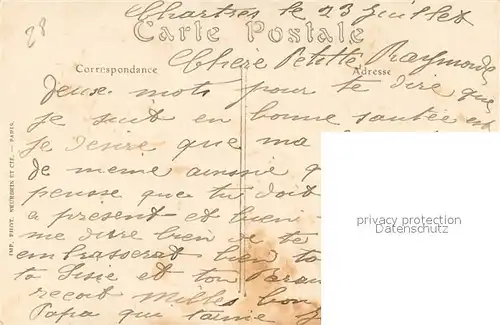 Chartres le 23 Juillet
28
Carte Postale
Chère Petitte Raymonde
Correspondance
Adresse
deux mots pour te dire que
je suit en bonne santée et
je desire que ma
de meme ainssie q
pensse que tu doit
a present et bien
me dire bien je te
embrasserat bien to
ta Sisie et ton
recoit milles bon
Papa qui t'aime
IMP. PHOT. NEURDEIN ET CIE. — PARIS.
privacy protection
Datenschutz